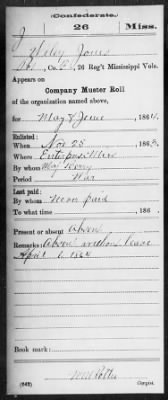 Confederate.
J 26 Miss.
Wiley Jones
Co. 26 Reg't Mississippi Vols.
Appears on
Company Muster Roll
of the organization named above,
for May & June, 1864.
Enlisted:
When Nov 25, 186
Where Enterprise Miss
By whom Maj
Period War
Last paid:
By whom Never paid
To what time, 186 .
Present or absent Absent
Remarks: Absent without leave
April 1. 1864
Book mark:
(642) Copyist.